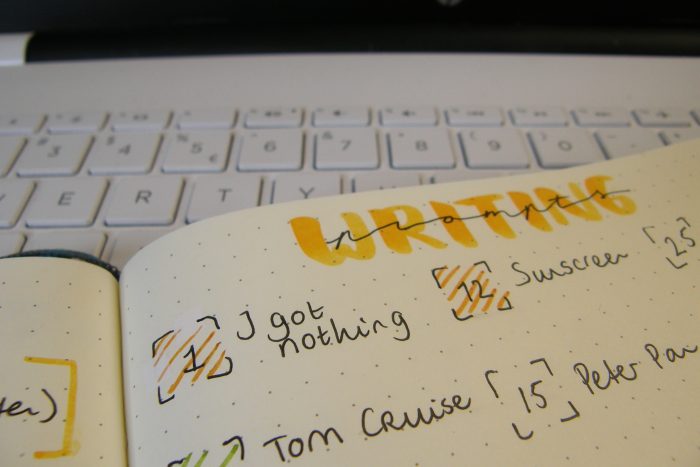 3 4 % 5 € 6 & 7 * 8 ( 9 ) 0
E R T Y
WRITING
prompts
1 I got nothing
12 Sunscreen
25
Tom Cruise
15 Peter Pan